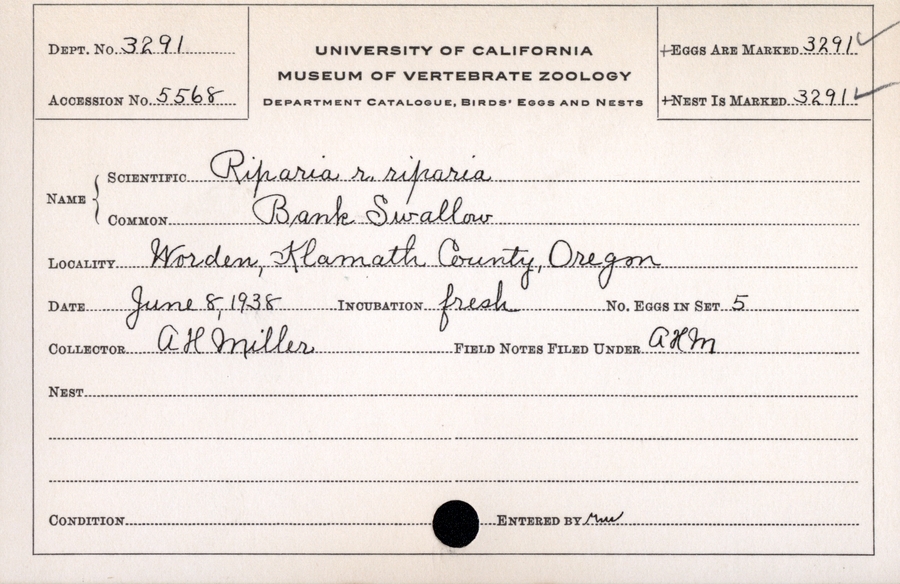 Dept. No. 3291
Accession No. 5568
UNIVERSITY OF CALIFORNIA
MUSEUM OF VERTEBRATE ZOOLOGY
Department Catalogue, Birds' Eggs and Nests
+Eggs Are Marked 3291 ✓
+Nest Is Marked 3291 ✓
Name { Scientific Riparia r. riparia
Common Bank Swallow
Locality Worden, Klamath County, Oregon
Date June 8, 1938 Incubation fresh No. Eggs in Set 5
Collector A H Miller Field Notes Filed Under AHM
Nest
Condition Entered by